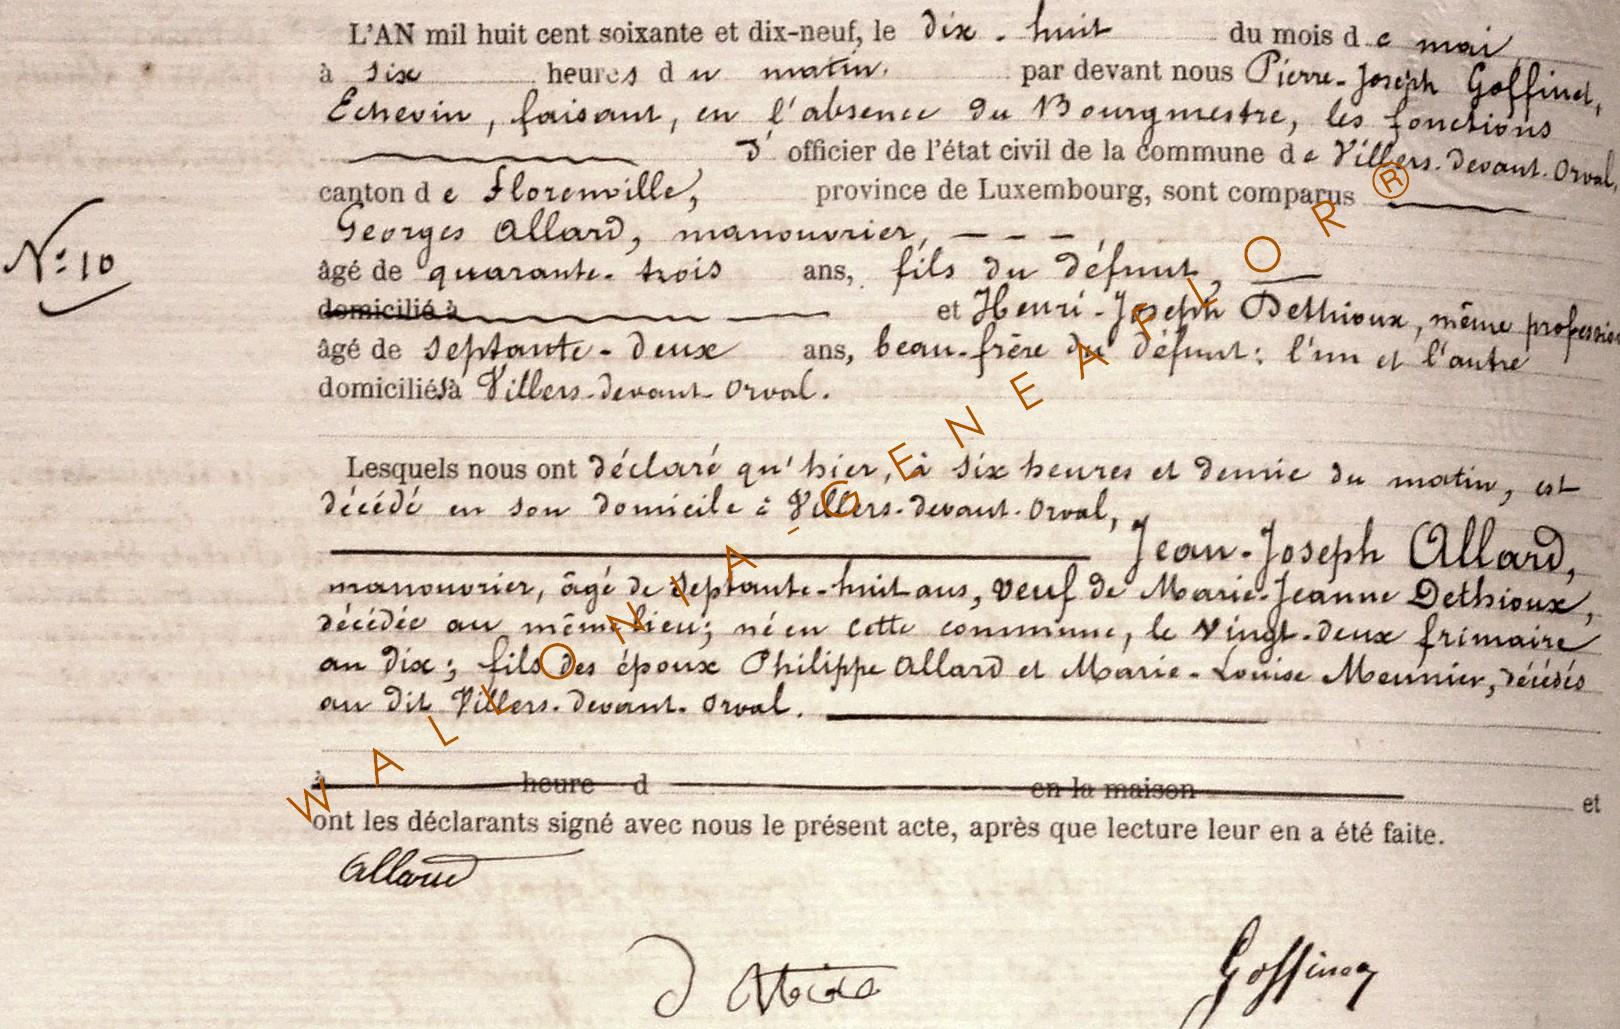 L'AN mil huit cent soixante et dix-neuf, le dix-huit du mois de mai
à six heures du matin, par devant nous Pierre-Joseph Goffinet,
Echevin, faisant, en l'absence du Bourgmestre, les fonctions
d'officier de l'état civil de la commune de Villers-devant-Orval,
canton de Florenville, province de Luxembourg, sont comparus
Georges Allard, manouvrier, - - -
N:º 10
âgé de quarante-trois ans, fils du défunt,
domicilié à et Henri-Joseph Dethioux, même profession
âgé de septante-deux ans, beau-frère du défunt: l'un et l'autre
domiciliés à Villers-devant-Orval.
Lesquels nous ont déclaré qu'hier, à six heures et demie du matin, est
décédé en son domicile à Villers-devant-Orval,
Jean-Joseph Allard,
manouvrier, âgé de septante-huit ans, veuf de Marie-Jeanne Dethioux,
décédée au même lieu; né en cette commune, le vingt-deux frimaire
an dix; fils des époux Philippe Allard et Marie-Louise Meunier, décédés
au dit Villers-devant-Orval.
à heure d en la maison et
ont les déclarants signé avec nous le présent acte, après que lecture leur en a été faite.
Allard
Goffinet
WALLONIA-GENEAFLOR®